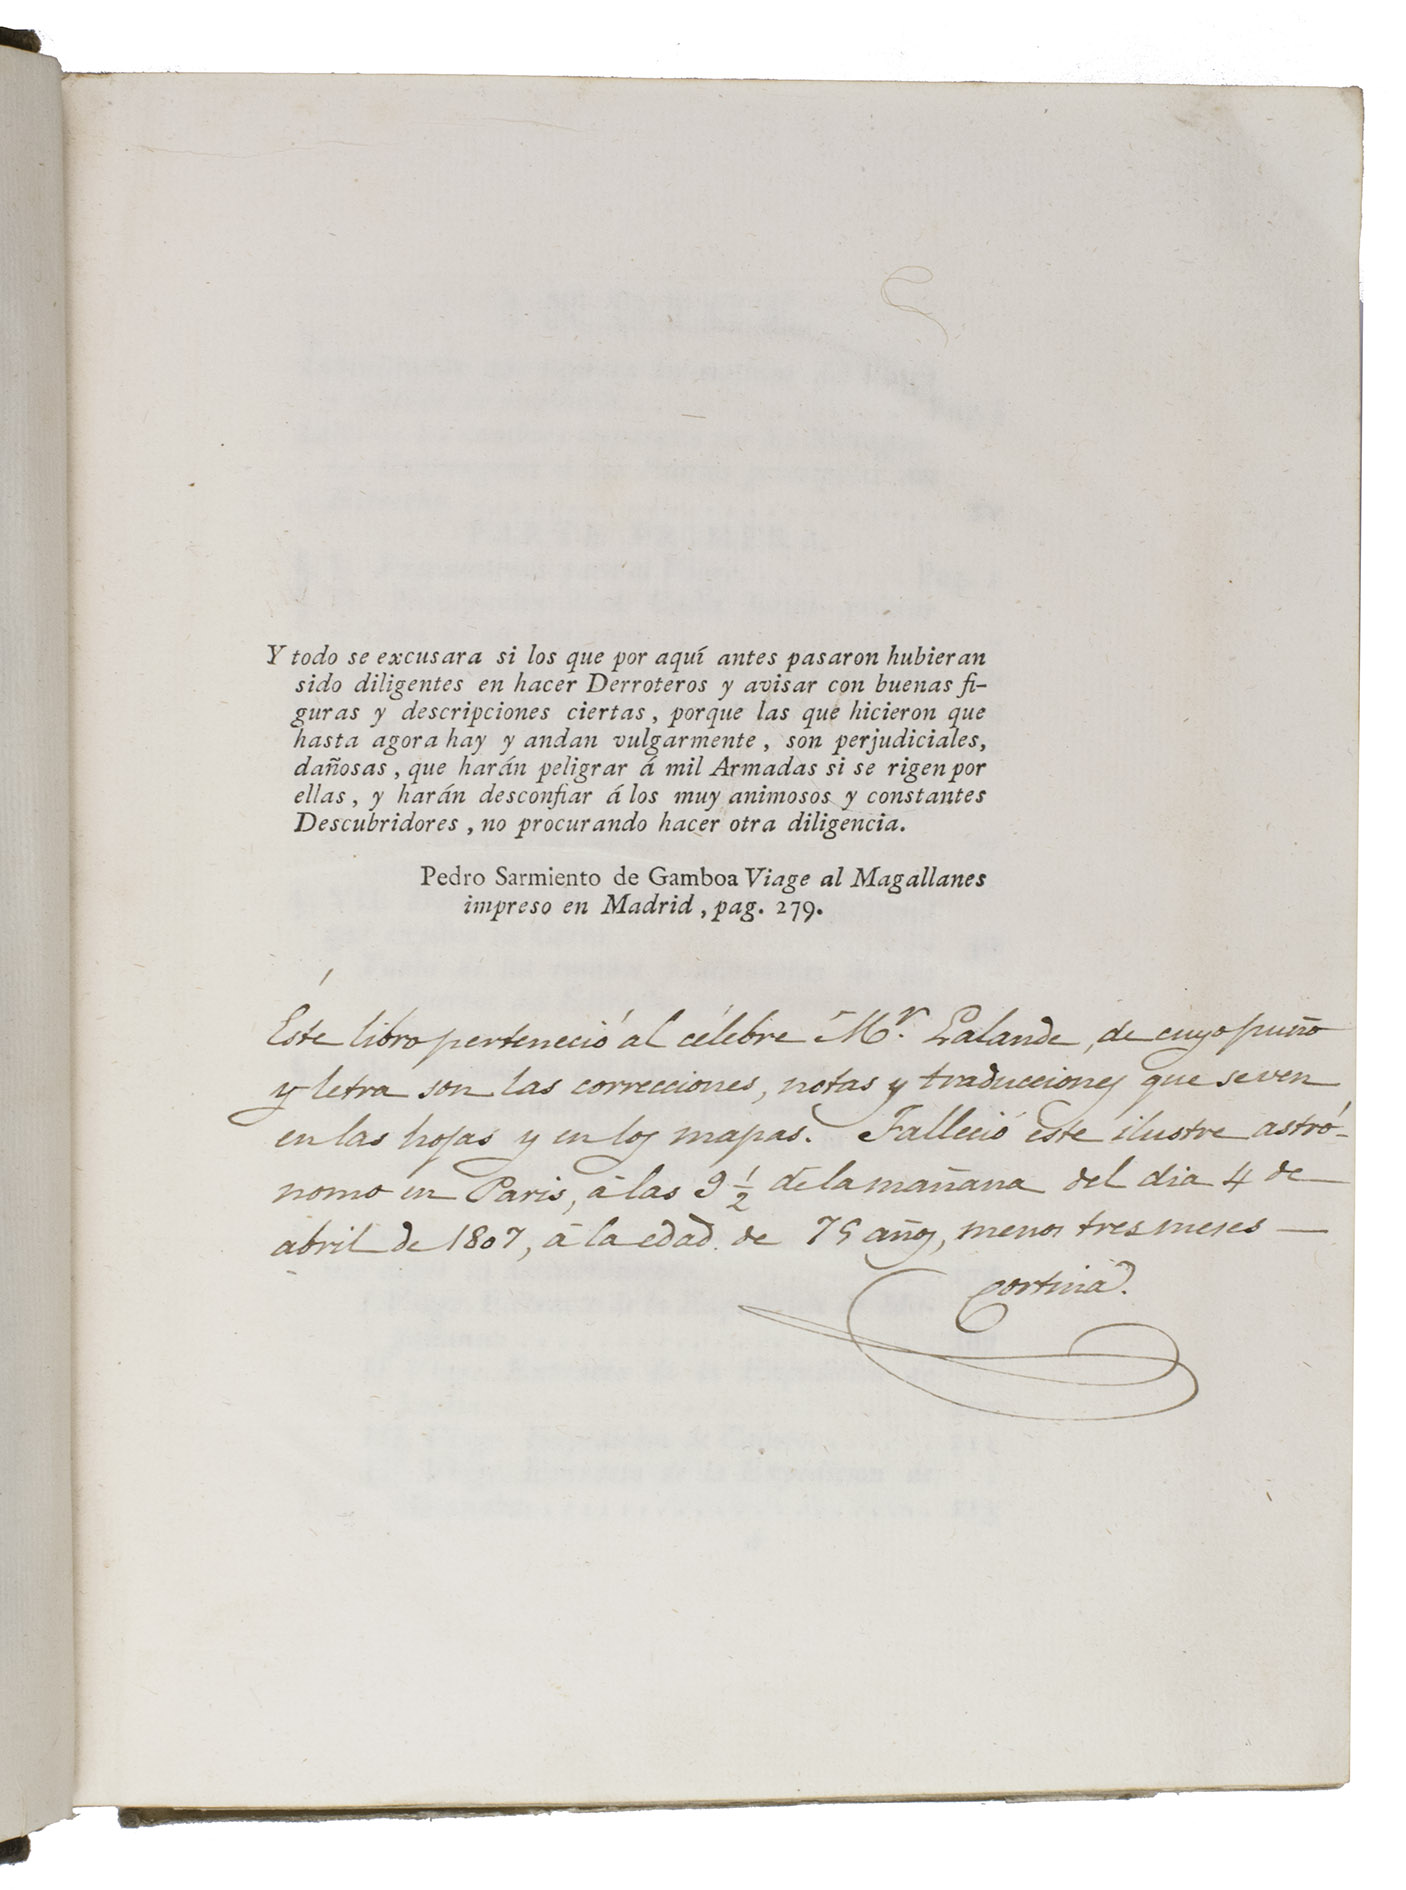 Y todo se excusara si los que por aquí antes pasaron hubieran
sido diligentes en hacer Derroteros y avisar con buenas fi-
guras y descripciones ciertas, porque las que hicieron que
hasta agora hay y andan vulgarmente, son perjudiciales,
dañosas, que harán peligrar á mil Armadas si se rigen por
ellas, y harán desconfiar á los muy animosos y constantes
Descubridores, no procurando hacer otra diligencia.
Pedro Sarmiento de Gamboa Viage al Magallanes
impreso en Madrid, pag. 279.
Éste libro perteneció al célebre Mr. Lalande, de cuyo puño
y letra son las correcciones, notas y traducciones que se ven
en las hojas y en los mapas. Falleció éste ilustre astró-
nomo en Paris, á las 9 1/2 de la mañana del dia 4 de
abril de 1807, á la edad de 75 años, menos tres meses —
Cortina.